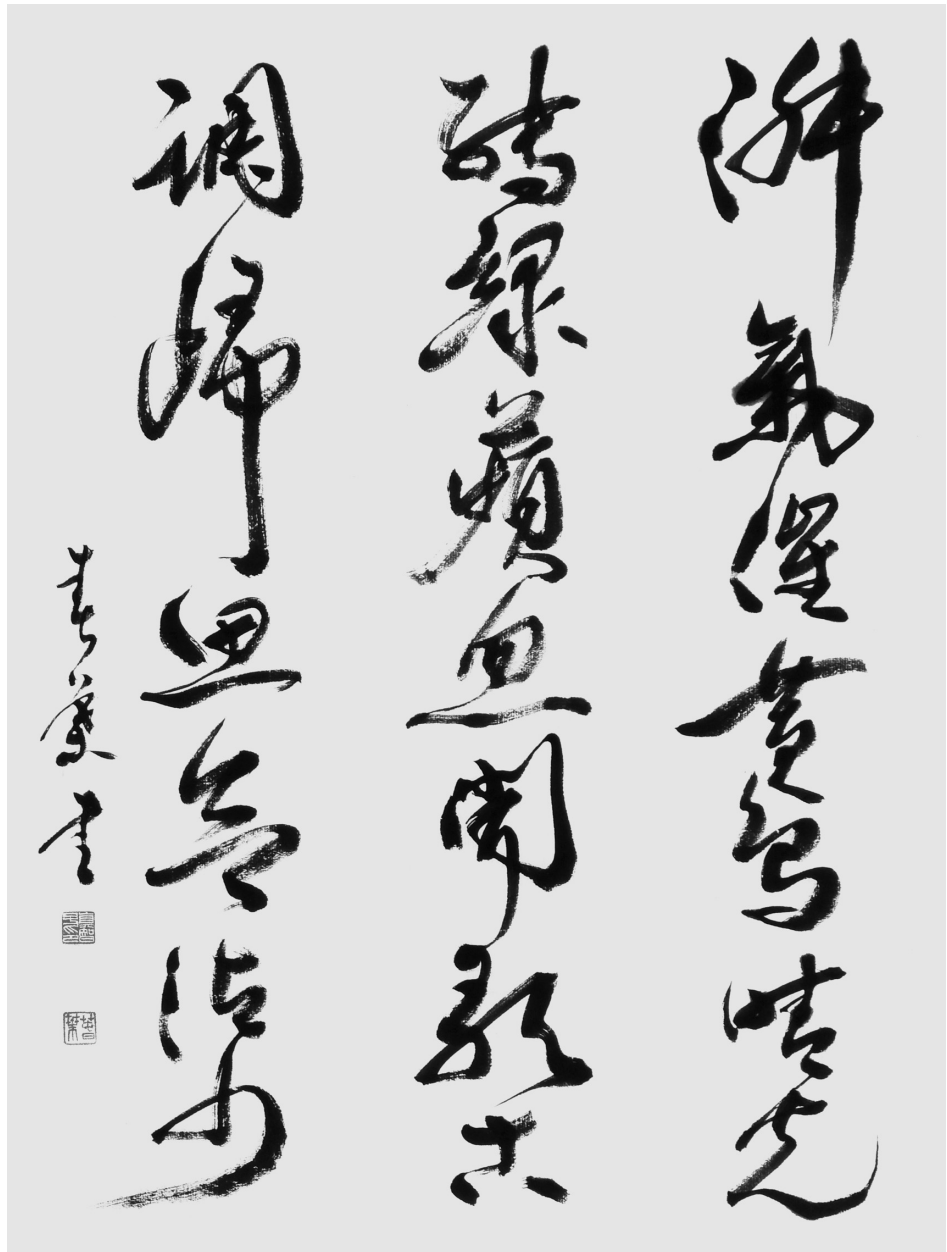 淑氣催黄鳥晴光
轉緑蘋忽聞歌古
調歸思欲沾巾
春葉書
春葉